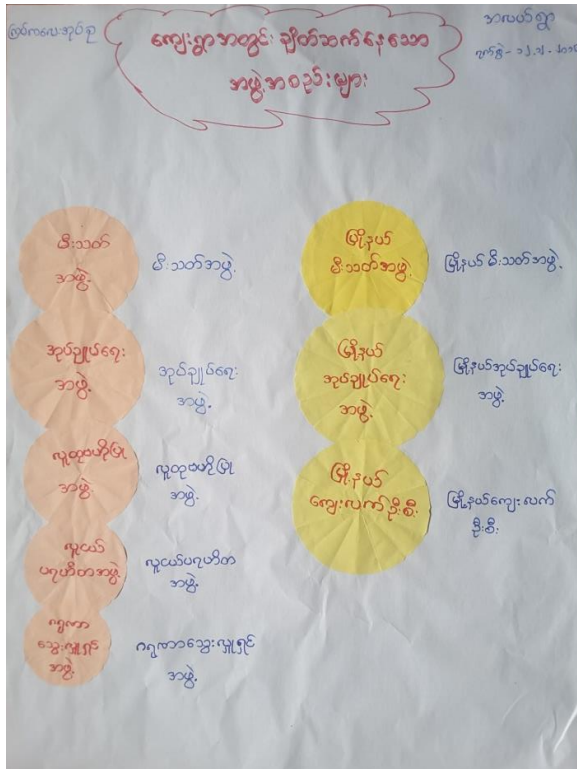 ကြပ်ကလေးအုပ်စု
ကျေးရွာအတွင်း ချိတ်ဆက်နေသော
အဖွဲ့အစည်းများ
အလယ်ရွာ
မီးသတ်
အဖွဲ့
မီးသတ်အဖွဲ့
အုပ်ချုပ်ရေး
အဖွဲ့
အုပ်ချုပ်ရေး
အဖွဲ့
လူထုဗဟိုပြု
အဖွဲ့
လူထုဗဟိုပြု
အဖွဲ့
လူငယ်
ပရဟိတအဖွဲ့
လူငယ်ပရဟိတ
အဖွဲ့
ဂရုဏာ
သွေးလှူရှင်
အဖွဲ့
ဂရုဏာသွေးလှူရှင်
အဖွဲ့
မြို့နယ်
မီးသတ်အဖွဲ့
မြို့နယ် မီးသတ်အဖွဲ့
မြို့နယ်
အုပ်ချုပ်ရေး
အဖွဲ့
မြို့နယ်အုပ်ချုပ်ရေး
အဖွဲ့
မြို့နယ်
ကျေးလက်ဦးစီး
မြို့နယ်ကျေးလက်
ဦးစီး